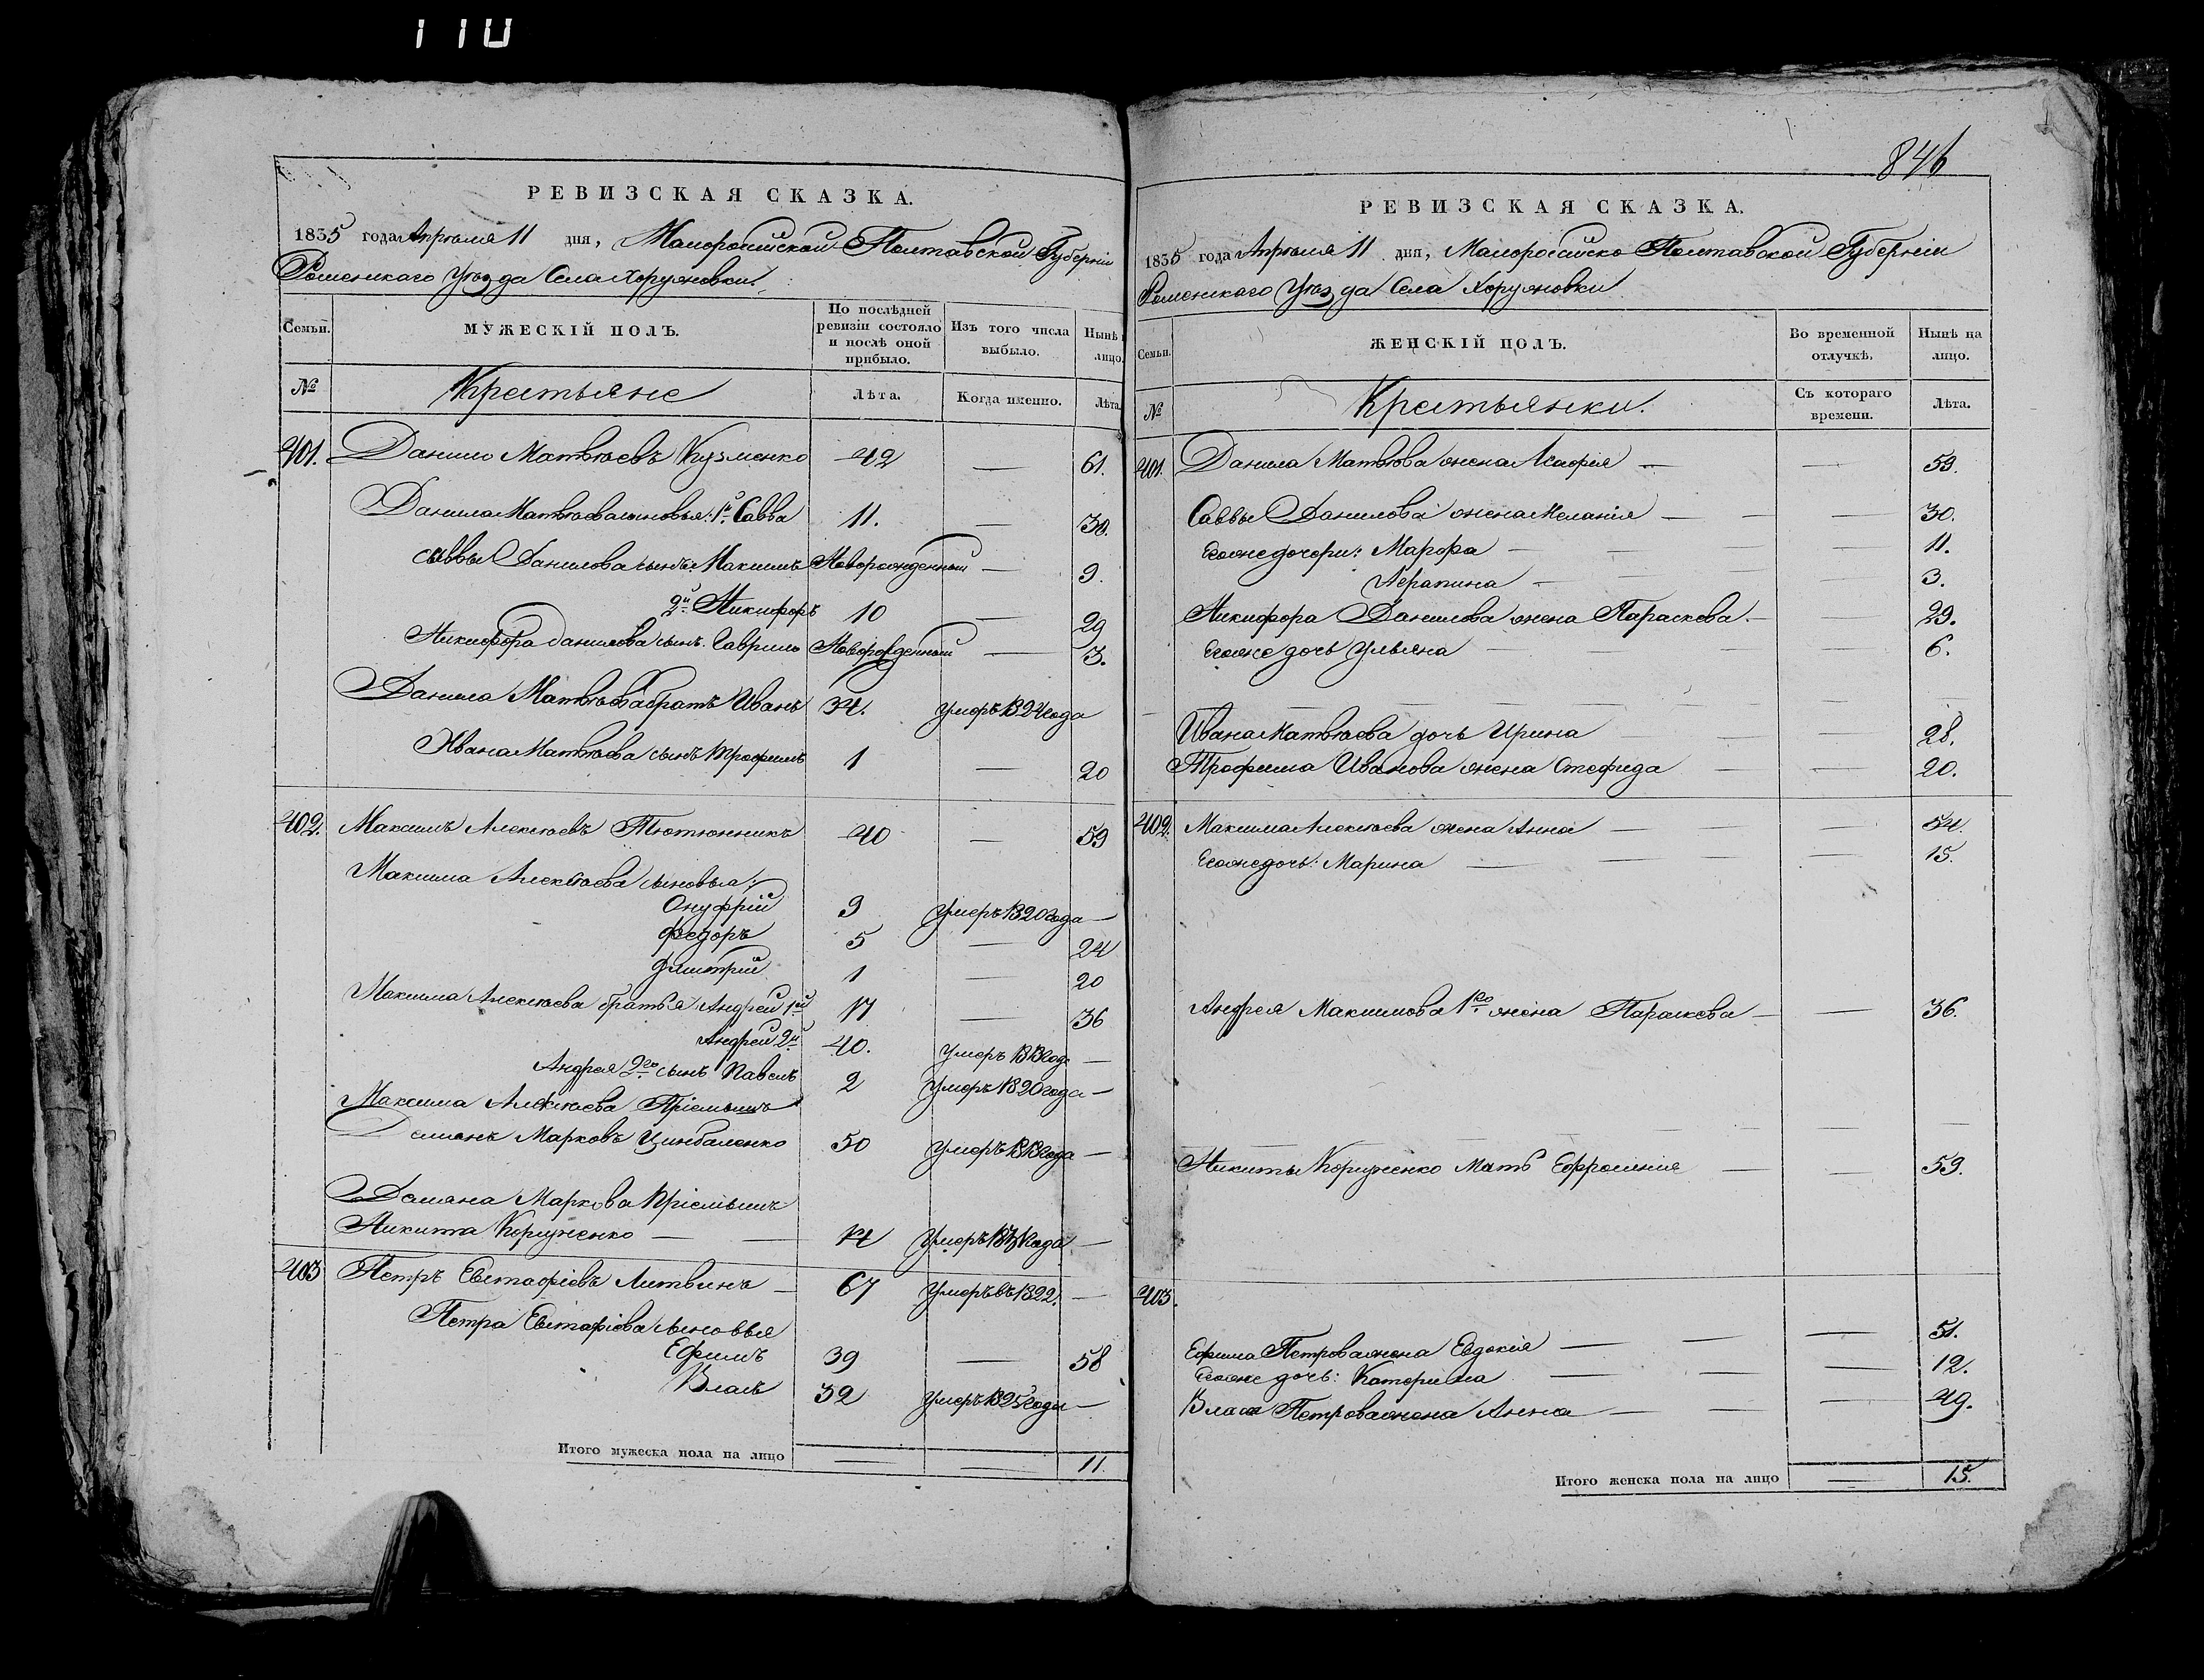 110
846
РЕВИЗСКАЯ СКАЗКА.
1835 года Апрѣля 11 дня, Малороссійской Полтавской Губерніи
Роменскаго Уѣзда Села Хоружовки.
Семьи. МУЖЕСКІЙ ПОЛЪ. По послѣдней ревизіи состояло и послѣ оной прибыло. Изъ того числа выбыло. Нынѣ лицо.
№ Крестьяне Лѣта. Когда именно. Лѣта.
401. Данило Матвѣевъ Кузменко 42 — 61.
Данила Матвѣева сыновья: 1й Савва 11. — 30.
Саввы Данилова сынъ Максимъ Новорожденный — 9.
2й Никифоръ 10 — 29
Никифора Данилова сынъ Гаврило Новорожденный — 3.
Данила Матвѣева братъ Иванъ 34. умеръ 1824 года
Ивана Матвѣева сынъ Трофимъ 1 — 20
402. Максимъ Алексѣевъ Тютюнникъ 40 — 59
Максима Алексѣева сыновья:
Онуфрій 9 Умеръ 1820 года —
Федоръ 5 — 24
Дмитрій 1 — 20
Максима Алексѣева братья Андрей 1й 17 — 36
Андрей 2й 40. Умеръ —
Андрея 2го сынъ Павелъ 2 Умеръ 1820 года —
Максима Алексѣева Пріемышъ
Демянъ Марковъ Цимбаленко 50 Умеръ —
Демяна Маркова Пріемышъ
Никита Коруженко — — 14 Умеръ 1831 года —
403 Петръ Евстафіевъ Литвинъ — 67 Умеръ въ 1822. —
Петра Евстафіева сыновья
Ефимъ 39 — 58
Власъ 32 Умеръ 1825 года —
Итого мужеска пола на лицо — — 11.
РЕВИЗСКАЯ СКАЗКА.
1835 года Апрѣля 11 дня, Малоросійско Полтавской Губерніи
Роменскаго Уѣзда Села Хоружовки
Семьи. ЖЕНСКІЙ ПОЛЪ. Во временной отлучкѣ. Нынѣ на лицо.
№ Крестьянки. Съ котораго времени. Лѣта.
401. Данила Матвѣева жена — — 59.
Саввы Данилова жена Меланія — — — 30.
Егоже дочери: Марфа — — — 11.
— — — 3.
Никифора Данилова жена Параскева. — — 29.
Егоже дочь Ульяна — — — 6.
Ивана Матвѣева дочь Ирина — — — 28.
Трофима Иванова жена Стефида — — 20.
402. Максима Алексѣева жена Анна — — — 54.
Егоже дочь: Марина — — — 15.
Андрея Максимова 1го жена Параскева — — 36.
Никиты Коруженко Мать Ефросинія — — 59.
403.
Ефима Петрова жена Евдокія — — — 51.
Егоже дочь: Катерина — — — 12.
Власа Петрова жена Анна — — — 49.
Итого женска пола на лицо — 15.